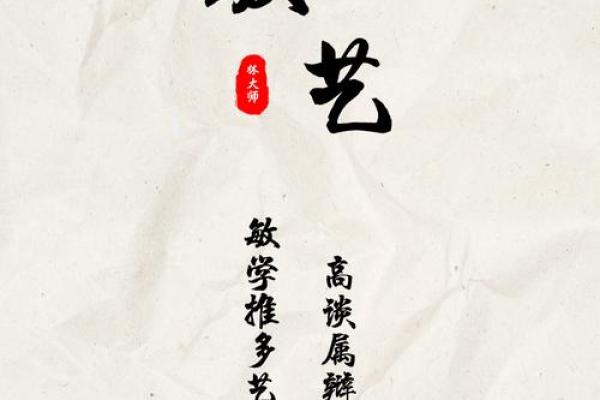 艺
大师
敏学推多艺
高谈属辩